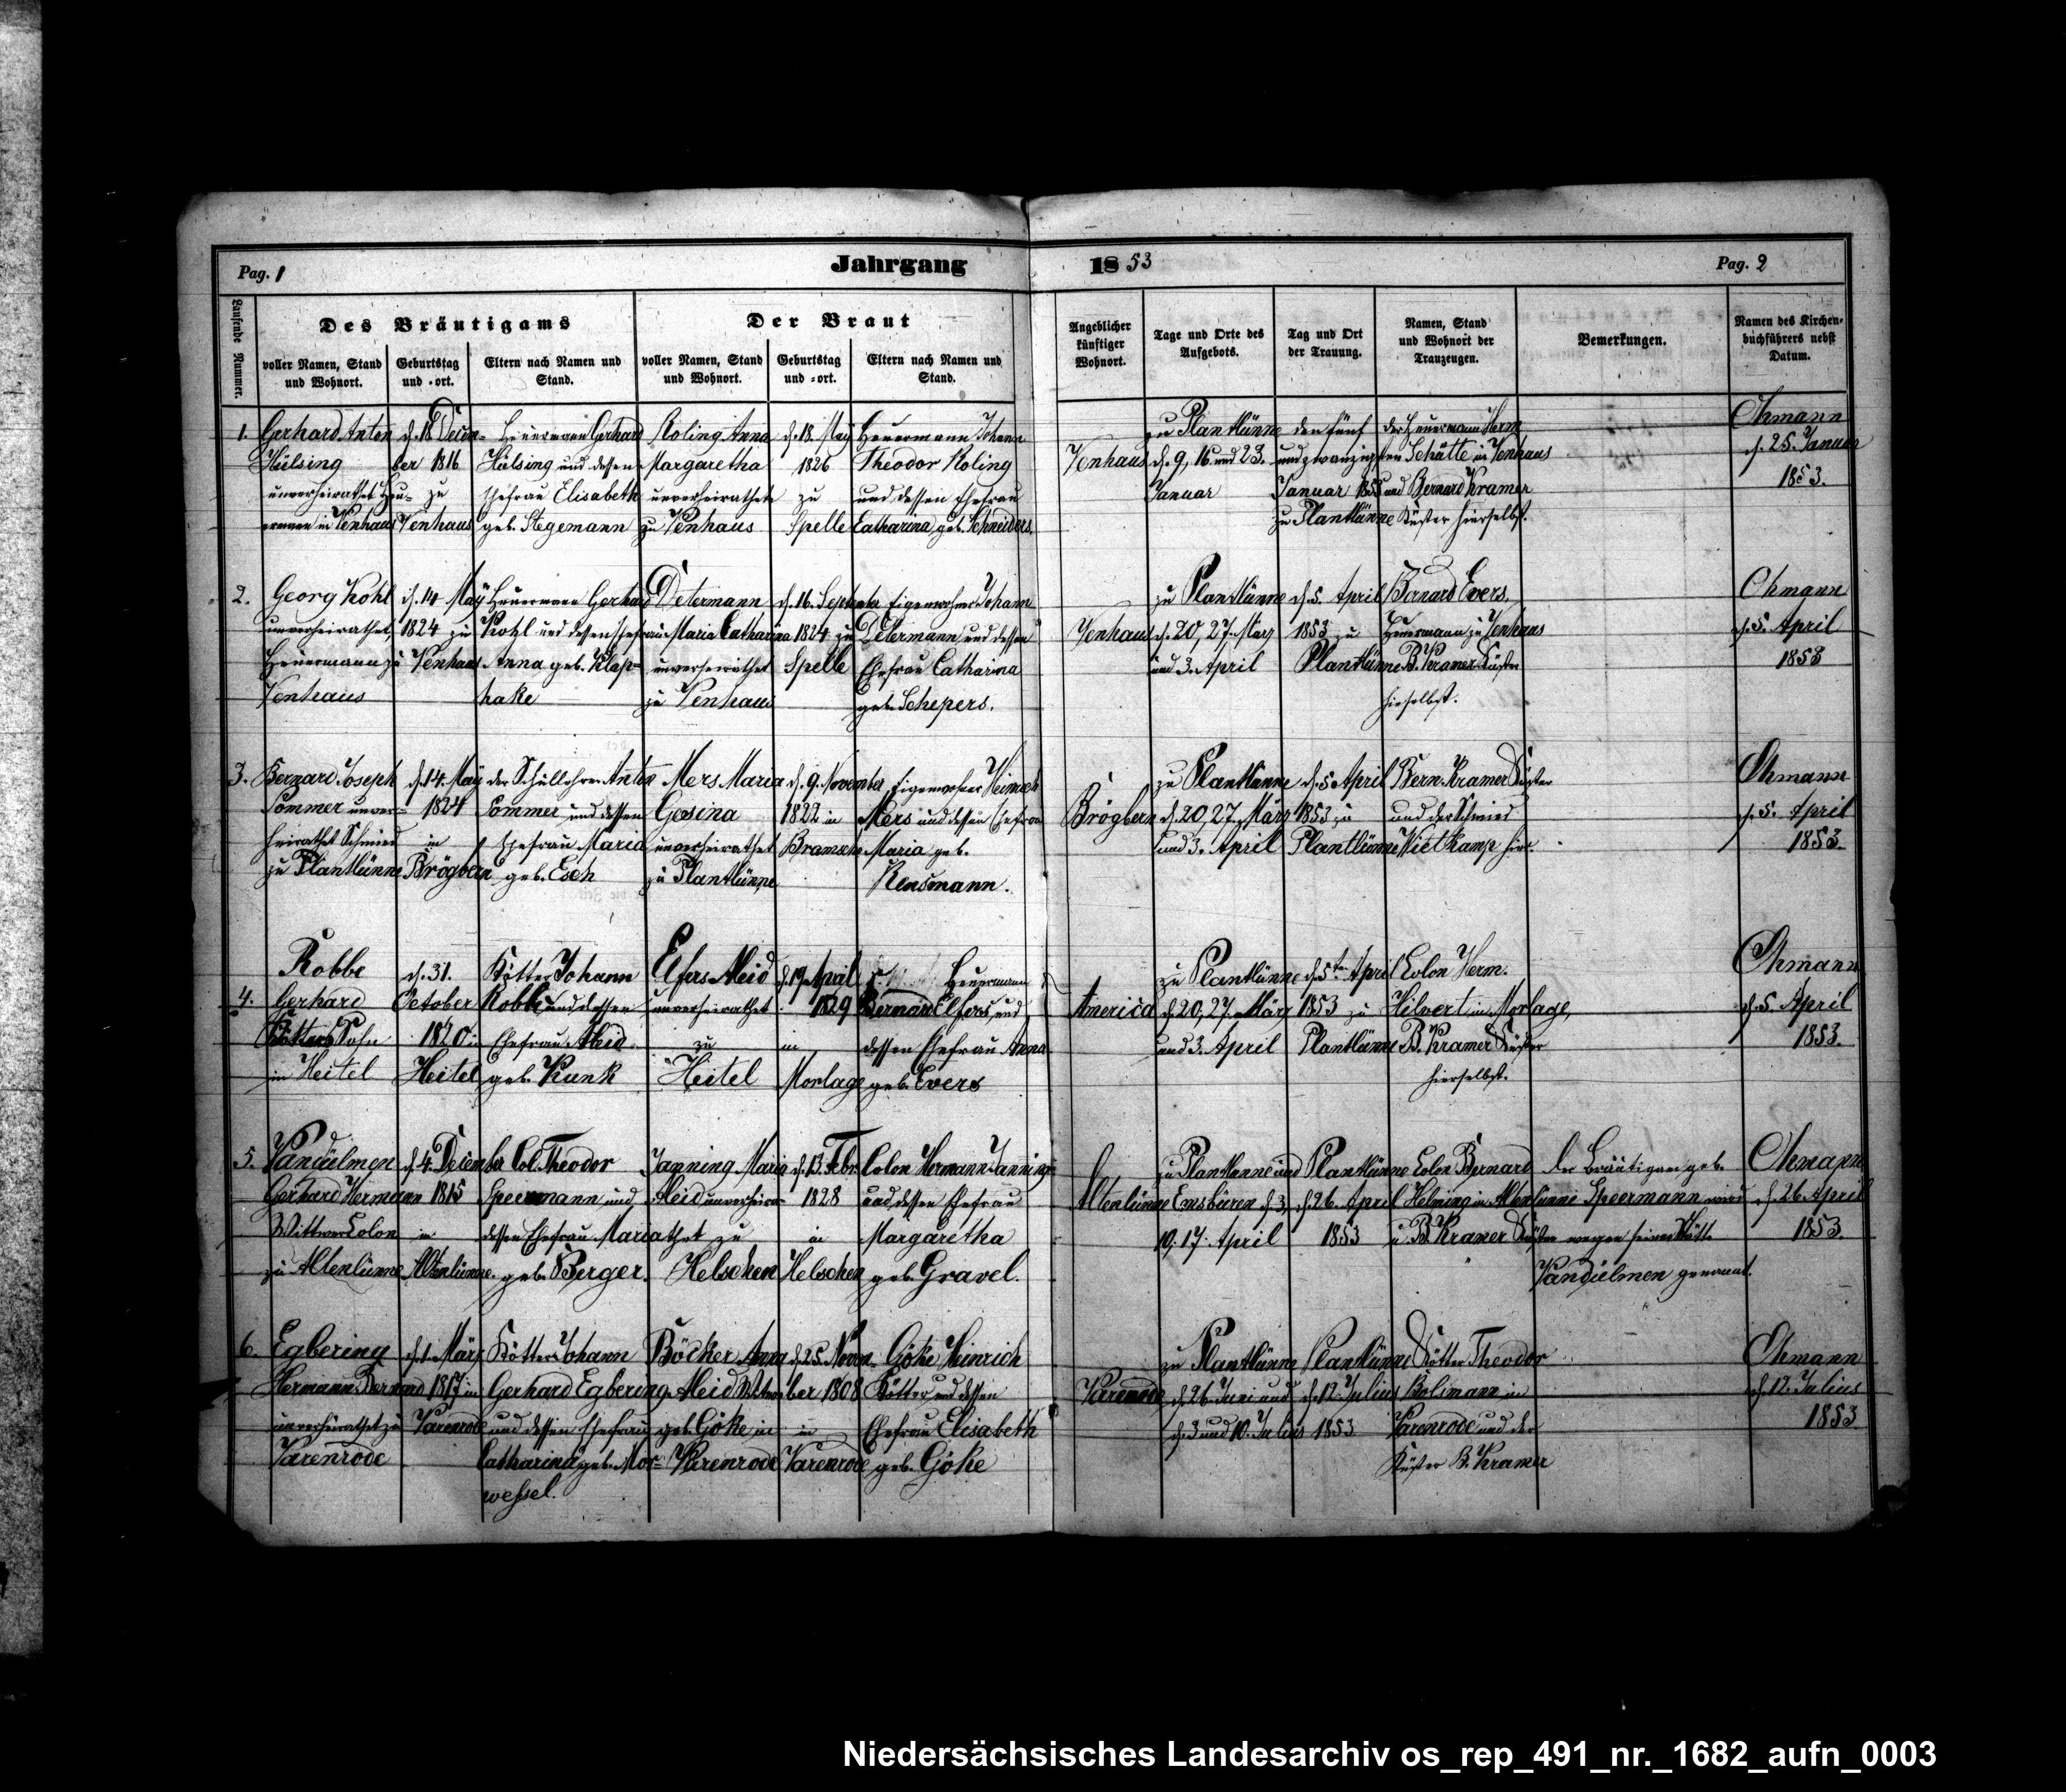 Pag. 1
Jahrgang 1853
Pag. 2
Laufende Nummer.
Des Bräutigams
voller Namen, Stand
und Wohnort.
Geburtstag
und =ort.
Eltern nach Namen und
Stand.
Der Braut
voller Namen, Stand
und Wohnort.
Geburtstag
und =ort.
Eltern nach Namen und
Stand.
Angeblicher
künftiger
Wohnort.
Tage und Orte des
Aufgebots.
Tag und Ort
der Trauung.
Namen, Stand
und Wohnort der
Trauzeugen.
Bemerkungen.
Namen des Kirchen-
buchführers nebst
Datum.
1.
Gerhard Anton
Hülsing
unverheirathet Heu-
ermann in Venhaus
d. 18. Decem-
ber 1816
zu
Venhaus
Heuermann Gerhard
Hülsing und dessen
Ehefrau Elisabeth
geb. Stegemann
Koling Anna
Margaretha
unverheirathete
zu Venhaus
d. 18. May
1826
zu
Spelle
Heuermann Johann
Theodor Koling
und dessen Ehefrau
Catharina geb. Schneiders.
Venhaus
zu Plantlünne
d. 9, 16. und 23.
Januar
den fünf
und zwanzigsten
Januar 1853
zu Plantlünne
der Heuermann Herm
Schütte in Venhaus
und Bernard Kramer
Küster hierselbst.
Ohmann
d. 25. Januar
1853.
2.
Georg Kohl
unverheirathet,
Heuermann zu
Venhaus
d. 14 May
1824 zu
Venhaus
Heuermann Gerhard
Kohl und dessen Ehefrau
Anna geb. Klap-
hake
Determann
Maria Catharina
unverheirathet
zu Venhaus
d. 16. September
1824 zu
Spelle
Eigenwohner Johann
Determann und dessen
Ehefrau Catharina
geb. Schepers.
Venhaus
zu Plantlünne
d. 20, 27. März
und 3. April
d. 5. April
1853 zu
Plantlünne
Bernard Evers
Heuermann zu Venhaus
B. Kramer Küster
hieselbst.
Ohmann
d. 5. April
1853
3.
Bernard Joseph
Sommer unver-
heirathet Schmied
zu Plantlünne
d. 14. May
1824
in
Brögbern
der Schullehrer Anton
Sommer und dessen
Ehefrau Maria
geb. Esch
Mers Maria
Gesina
unverheirathet
zu Plantlünne
d. 9. November
1822 in
Bramsche
Eigenwohner Heinrich
Mers und dessen Ehefrau
Maria geb.
Rensmann.
Brögbern
zu Plantlünne
d. 20, 27. März
und 3. April
d. 5 April
1853 zu
Plantlünne
Bern. Kramer Küster
und der Schmied
Wietkamp hier.
Ohmann
d. 5. April
1853.
4.
Robbe
Gerhard
Kötters Sohn
in Heitel
d. 31.
October
1820 in
Heitel
Kötter Johann
Robbe und dessen
Ehefrau Aleid
geb. Kunk
Elfers Aleid
unverheirathet
zu
Heitel
d. 19. April
1829
in
Morlage
Heuermann
Bernard Elfers, und
dessen Ehefrau Anna
geb. Evers
America
zu Plantlünne
d. 20, 27. März
und 3. April
d. 5ten April
1853 zu
Plantlünne
Colon Herm.
Hilvert in Morlage,
B. Kramer Küster
hierselbst.
Ohmann
d. 5. April
1853.
5.
Vandülmen
Gerhard Hermann
Wittwer Colon
zu Altenlünne
d. 4. December
1815
in
Altenlünne.
Col. Theodor
Speermann und
dessen Ehefrau Maria
geb. Berger.
Janning Maria
Aleid unverheira-
thet zu
Helschen
d. 13. Febr.
1828
in
Helschen
Colon Hermann Janning
und dessen Ehefrau
Margaretha
geb. Gravel.
Altenlünne
zu Plantlünne und
Emsbüren d. 3,
10, 17. April
Plantlünne
d. 26. April
1853
Colon Bernard
Helming in Altenlünne
u. B. Kramer Küster
Der Bräutigam geb.
Speermann wird
wegen seiner Stätte
Vandülmen genannt.
Ohmann
d. 26 April
1853.
6.
Egbering
Hermann Bernard
unverheirathet zu
Varenrode
d. 1. März
1817 in
Varenrode
Kötter Johann
Gerhard Egbering
und dessen Ehefrau
Catharina geb. Mor-
wessel.
Böcker Anna
Aleid Wittwe
geb. Göke in
Varenrode
d. 25. Novem-
ber 1808
in
Varenrode
Göke Heinrich
Kötter und dessen
Ehefrau Elisabeth
geb. Göke
Varenrode
zu Plantlünne
d. 26. Juni und
d. 3 und 10. Julius
Plantlünne
d. 12. Julius
1853
Kötter Theodor
Bolmann in
Varenrode und der
Küster B. Kramer
Ohmann
d. 12. Julius
1853
Niedersächsisches Landesarchiv os_rep_491_nr._1682_aufn_0003